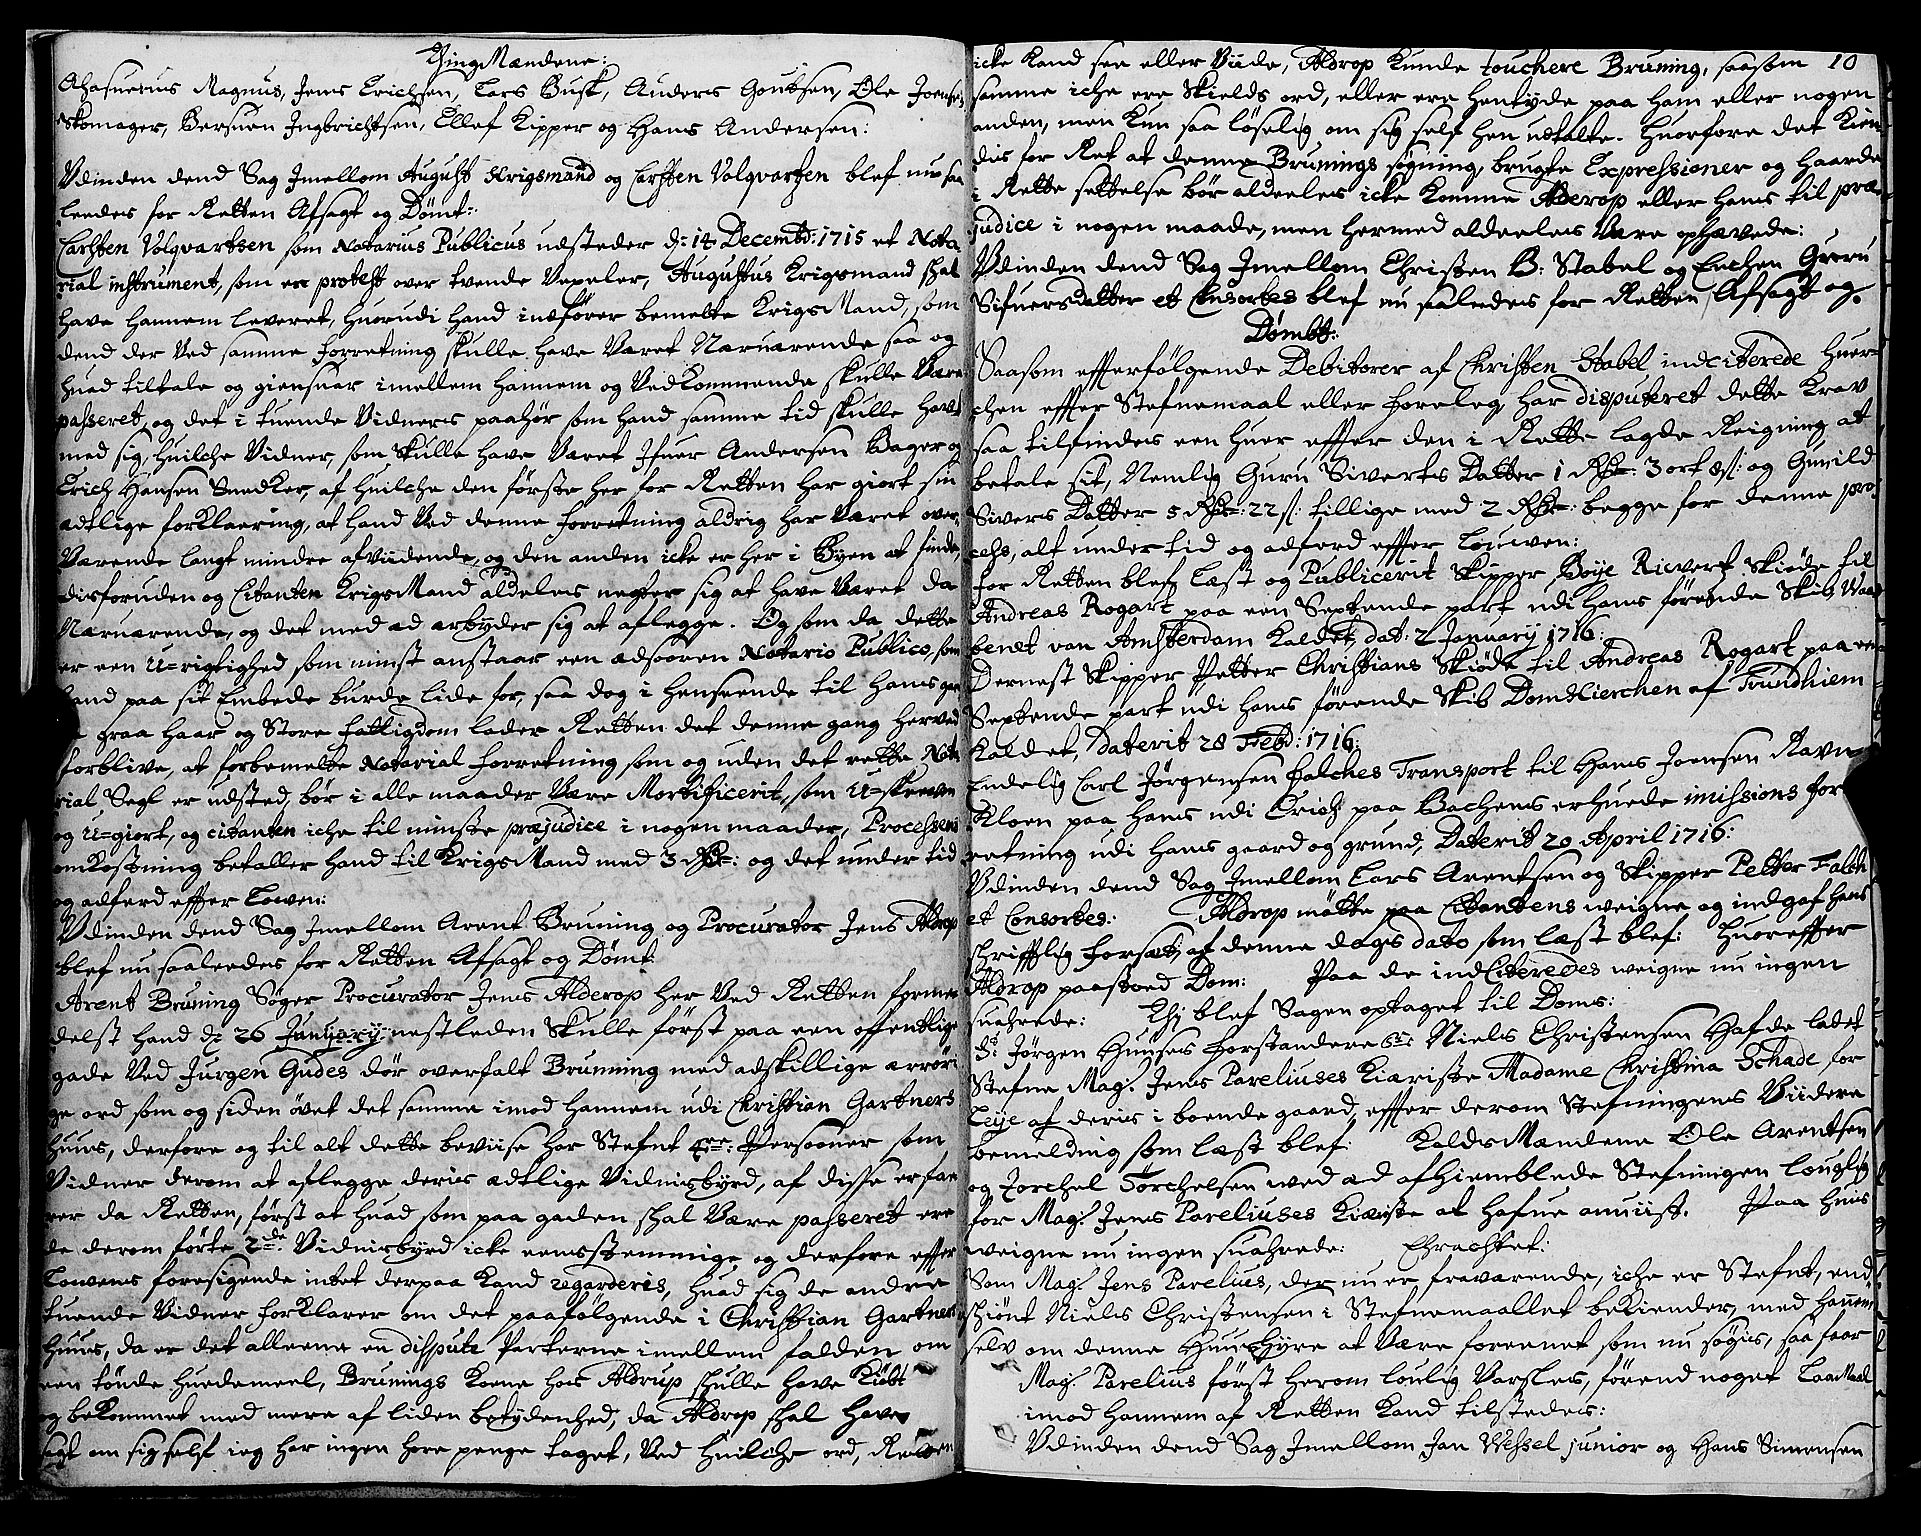 TingMændene:
Ahasuerus Magnus, Jens Erichsen, Lars Busk, Anders Goubsen, Ole Joensen
Skomager, Bersuen Ingbrichtsen, Ellef Kipper og Hans Andersen:
Udinden dend Sag Imellom August Krigsmand og Carsten Volqvartsen blef nu saa
leedes for Retten Afsagt og Dømt:
Carsten Volqvartsen som Notarius Publicus udsteder d: 14 Decembr: 1715 et Nota
rial instrument, som er protest over tvende Vexeler, Augustus Krigsmand skal
have hannem leveret, huorudi hand indfører bemelte KrigsMand, som
dend der Ved samme forretning skulle have Været Nærværende saa og
huad tiltale og giensuar imellem hannem og VedKommende skulle Være
passeret, og det i tuende Vidners paahør som hand samme tid skulle havt
med sig, huilche Vidner, som skulle have Været Ifuer Andersen Bager og
Erich Hansen Snedker, af huilche den første her for Retten har giort sin
ædtlige forklaering, at hand Ved denne forretning aldrig har Været over,
Værende langt mindre afviidende, og den anden icke er her i Byen at finde,
disforuden og Citanten KrigsMand aldeles negter sig at have Været da
Nærværende, og det med æd erbyder sig at aflegge. Og som da dette
er een U-rigtighed som minst anstaar een ædsooren Notario Publico, som
hand paa sit Embede burde lide for, saa dog i henseende til hans
graa haar og Store fattigdom lader Retten det denne gang herved
forblive, at forbemelte Notarial forretning som og uden det rette Nota
rial Segl er udsted, bør i alle maader Være Mortificerit, som U-skreven
og U-giort, og citanten iche til minste præjudice i nogen maader, Processens
omkostning betaller hand til KrigsMand med 3 Rdr: og det under tid
og adferd effter Lowen:
Udinden dend Sag Imellom Arent Bruning og Procurator Jens Aldrop
blef nu saaleedes for Retten Afsagt og Dømt:
Arent Bruning Søger Procurator Jens Alderop her Ved Retten forme
delst hand d: 26 January: nestleden Skulle først paa een offentlige
gade Ved Jurgen Gudes dør overfalt Brunning med adskillige ærrøri
ge ord som og siden øvet det samme imod hannem udi Christian Gartners
huus, derfore og til alt dette beviise har Stefnt Persooner som
Vidner derom at aflegge deris ædtlige Vidnisbyrd, af disse erfar
rer da Retten, først at huad som paa gaden skal Være passeret ere
de derom førte 2de Vidnisbyrd icke eensstemmige og derfore effter
Lowens foresigende intet derpaa Kand regarderis, huad sig de andre
tuende Vidner forklarer om det paafølgende i Christian Gartners
huus, da er det alleene en dispute Parterne imellem falden om
een tønde huedemeel, Brunings Kone hos Aldrup skulle have Kiøbt
og bekommet med mere af liden betydenhed, da Aldrop skal have
sagt om sig self ieg har ingen hore penge taget, Ved huilche ord, Retten
10
icke Kand see eller Viide, Aldrop Kunde touchere Bruning, saasom
samme iche ere Skields ord, eller ere hentyde paa ham eller nogen
anden, men Kun saa løselig om sig self hen udtalte. Huorfore det Kien
des for Ret at denne Brunings søgning, brugte Expressioner og haarde
i Rette settelse bør aldeeles icke Komme Alderop eller hans til præ
judice i nogen maade, men hermed aldeeles Være ophævede:
Udinden dend Sag Imellom Christen B: Stabel og Enchen Guru
Sifuersdatter et Consortes blef nu saaledes for Retten Afsagt og
Dømbt:
Saasom effterfølgende Debitorer af Christen Stabel indciterede huer
chen effter Stefnemaal eller foreleg, har disputeret dette Krav
saa tilfindes een huer effter den i Rette lagde Reigning at
betale sit, Nemlig Guru Siverts Datter 1 Rdr: 3 ort 8 s: og Gunild
Sivers Datter 5 Rdr: 22 s: tillige med 2 Rdr: begge for denne pro,
cess, alt under tid og adferd effter Louwen:
for Retten blef Læst og Publicerit Skipper Boye Rievert Skiøde til
Andreas Rogart paa een Septende part udi hans førende Skib Waa
benet van Amsterdam Kaldet, dat: 2 January 1716:
Dernest Skipper Petter Christians Skiøde til Andreas Rogart paa een
Septende part udi hans førende Skib DomKierchen af Trundhiem
Kaldet, Daterit 28 Febr: 1716:
Endelig Carl Jørgensen falches Transport til Hans Joensen Ravn
Kloen paa hans udi Erich paa Bachens erhuede imissions for
retning udi hans gaard og grund, Daterit 20 April 1716:
Udinden dend Sag Imellom Lars Arentsen og Skipper Petter Falch
et Consortes: Aldrop møtte paa Citantens weigne og indgaf hans
skrifftlig forsæt af denne dags dato som læst blef: Huoreffter
Aldrop paastoed Dom: Paa de indCiteredes weigne nu ingen
suahrede: Thj blef Sagen optaget til Doms:
Sr. Jørgen Huuses forstandere Niels Christensen Hafde ladet
Stefne Mag. Jens Pareliuses Kiæriste Madame Christina Schade for
Leye af deris i boende gaard, effter derom Stefningens Viidere
bemelding som læst blef: KaldsMændene Ole Arentsen
og Torchel Torchelsen med æd afhiemblede Stefningen louglig
for Mag. Jens Pareliuses Kiæriste at hafue anviist. Paa huis
weigne nu ingen suahrede: Erachtet:
Som Mag. Jens Parelius, der nu er fraværende, iche er Stefnt, end
skiønt Niels Christensen i Stefnemaallet bekiender, med hannem
selv om denne HuusHyre at Være foreenet som nu søges, saa faar
Mag. Parelius først herom loulig Varsles, førend noget LaaMaal
imod hannem af Retten Kand tilstedes:
Udinden dend Sag Imellom Jan Wessel junior og Hans Simensen